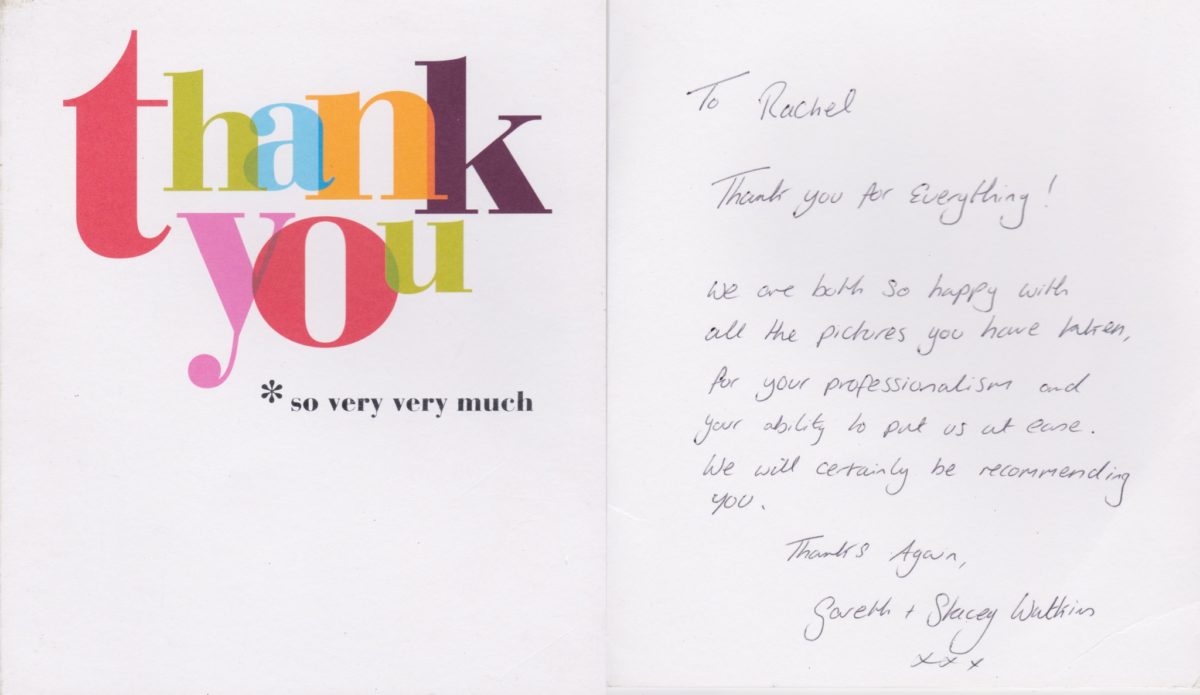 thank
you
* so very very much
To Rachel
Thank you for Everything!
We are both so happy with
all the pictures you have taken,
for your professionalism and
your ability to put us at ease.
We will certainly be recommending
you.
Thanks Again,
Gareth + Stacey Watkins
xxx